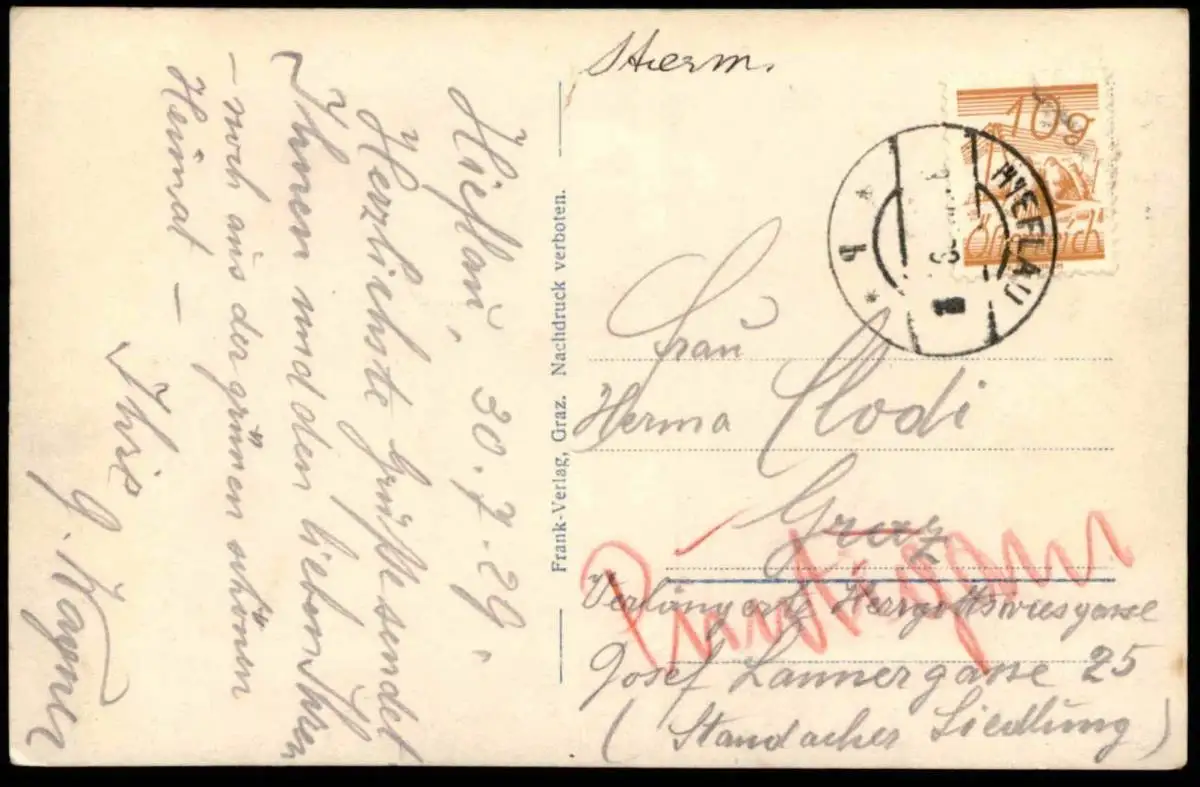 Hieflau, 30.7.29.
Herzlichste Grüße sendet
Ihnen und den lieben Ihren
– noch aus der grünen schönen
Heimat –
Ihre
G. Wagner
Frank-Verlag, Graz. Nachdruck verboten.
10g
Österreich
HIEFLAU
Frau
Herma Clodi
Graz
Puntigam
Verlängerte Herrgottswiesgasse
Josef Lannergasse 25
(Standacher Siedlung)